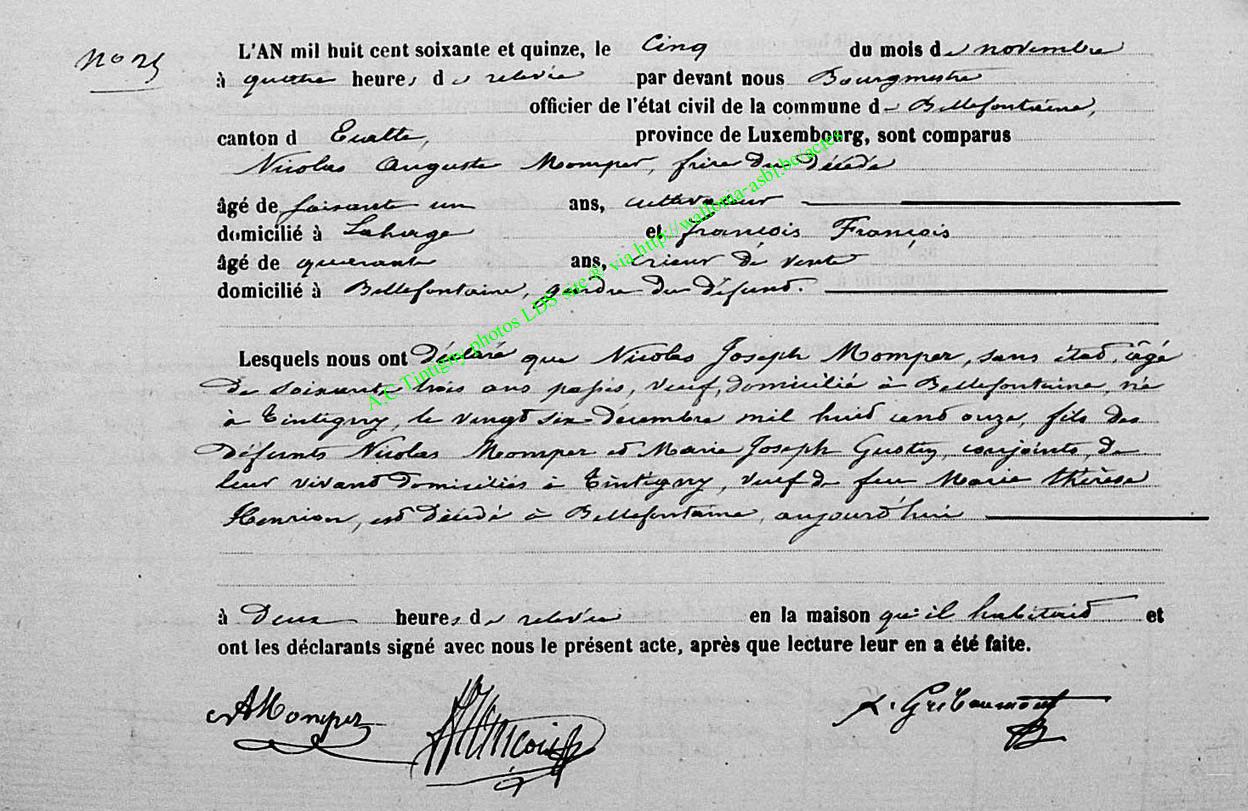 No 25
L'AN mil huit cent soixante et quinze, le Cinq du mois de novembre
à quatre heures de relevée par devant nous Bourgmestre
officier de l'état civil de la commune de Bellefontaine,
canton d'Etalle, province de Luxembourg, sont comparus
Nicolas Auguste Momper, frère du décédé
âgé de soixante un ans, cultivateur
domicilié à Lahage et françois François
âgé de quarante ans, crieur de vente
domicilié à Bellefontaine, gendre du défunt.
Lesquels nous ont déclaré que Nicolas Joseph Momper, sans état, âgé
de soixante trois ans passés, veuf, domicilié à Bellefontaine, né
à Tintigny, le vingt six decembre mil huit cent onze, fils des
défunts Nicolas Momper et Marie Joseph Gustin, conjoints, de
leur vivant domiciliés à Tintigny, veuf de feu Marie thérèse
Henrion, est décédé à Bellefontaine, aujourd'hui
à Deux heures de relevée en la maison qu'il habitait et
ont les déclarants signé avec nous le présent acte, après que lecture leur en a été faite.
AMomper François Gribaumont
A.C Tintigny photos LDS site ® via http://wallonia-asbl.be/actes